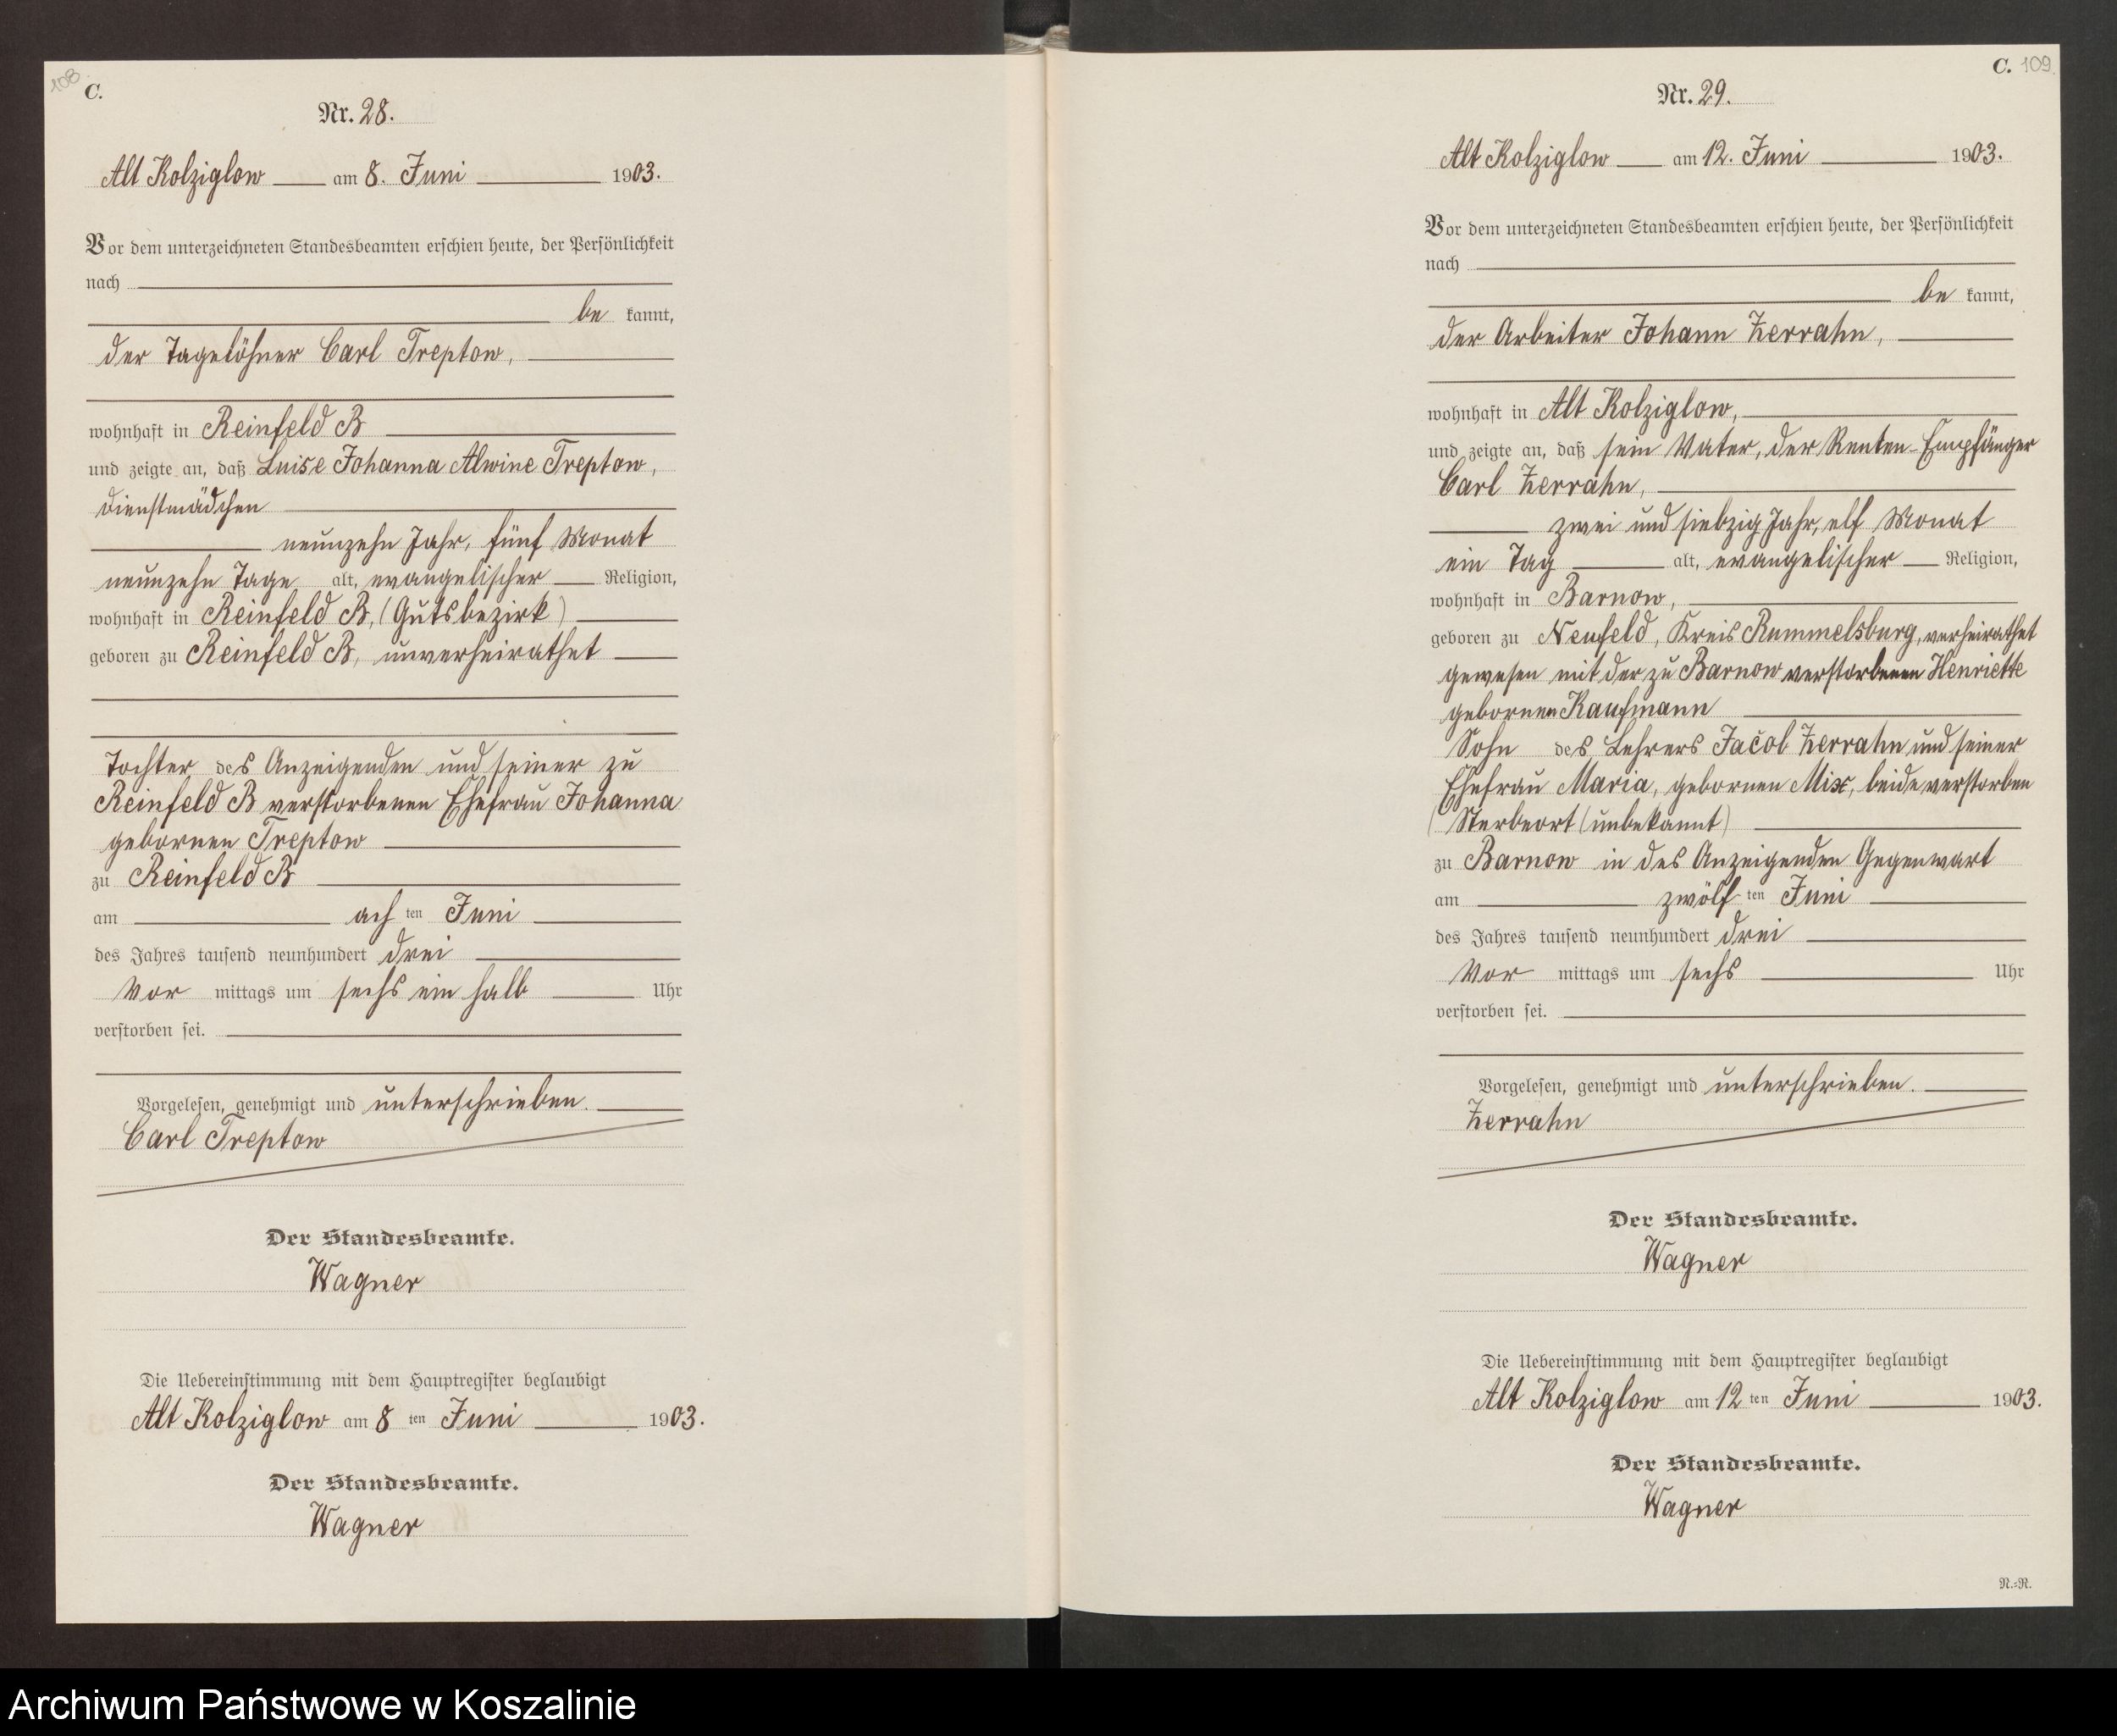 108
C.
Nr. 28.
Alt Kolziglow am 8. Juni 1903.
Vor dem unterzeichneten Standesbeamten erschien heute, der Persönlichkeit
nach
be kannt,
der Tagelöhner Carl Treptow,
wohnhaft in Reinfeld B
und zeigte an, daß Luise Johanna Alwine Treptow,
Dienstmädchen
neunzehn Jahr, fünf Monat
neunzehn Tage alt, evangelischer Religion,
wohnhaft in Reinfeld B, (Gutsbezirk)
geboren zu Reinfeld B, unverheirathet
Tochter des Anzeigenden und seiner zu
Reinfeld B verstorbenen Ehefrau Johanna
gebornen Treptow
zu Reinfeld B
am ach ten Juni
des Jahres tausend neunhundert drei
Vor mittags um sechs ein halb Uhr
verstorben sei.
Vorgelesen, genehmigt und unterschrieben.
Carl Treptow
Der Standesbeamte.
Wagner
Die Uebereinstimmung mit dem Hauptregister beglaubigt
Alt Kolziglow am 8 ten Juni 1903.
Der Standesbeamte.
Wagner
C. 109
Nr. 29.
Alt Kolziglow am 12. Juni 1903.
Vor dem unterzeichneten Standesbeamten erschien heute, der Persönlichkeit
nach
be kannt,
der Arbeiter Johann Zerrahn,
wohnhaft in Alt Kolziglow,
und zeigte an, daß sein Vater, der Renten-Empfänger
Carl Zerrahn,
zwei und siebzig Jahr, elf Monat
ein Tag alt, evangelischer Religion,
wohnhaft in Barnow,
geboren zu Neufeld, Kreis Rummelsburg, verheirathet
gewesen mit der zu Barnow verstorbenen Henriette
gebornen Kaufmann
Sohn des Lehrers Jacob Zerrahn und seiner
Ehefrau Maria, gebornen Mix, beide verstorben
(Sterbeort (unbekannt)
zu Barnow in des Anzeigenden Gegenwart
am zwölf ten Juni
des Jahres tausend neunhundert drei
Vor mittags um sechs Uhr
verstorben sei.
Vorgelesen, genehmigt und unterschrieben.
Zerrahn
Der Standesbeamte.
Wagner
Die Uebereinstimmung mit dem Hauptregister beglaubigt
Alt Kolziglow am 12 ten Juni 1903.
Der Standesbeamte.
Wagner
N.=R.
Archiwum Państwowe w Koszalinie